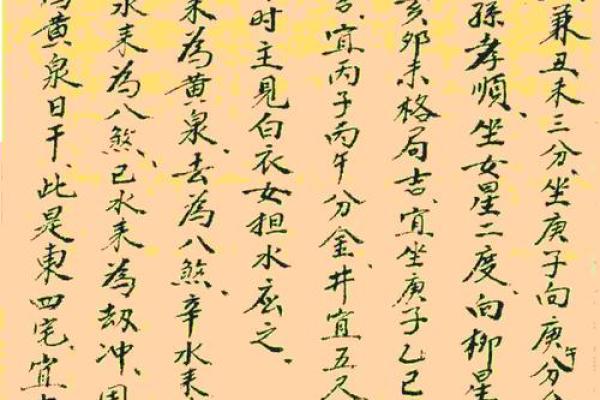 兼丑未三分、坐庚子向庚午分
孫孝順、坐女星二度、向柳星
亥卯未格局吉、宜坐庚子乙已
宜丙子丙午分金、井宜五尺
時主見白衣女担水应之、
来為黄泉、去為八煞、辛水来
水来為八煞、已水来為劫冲、
為黄泉日干、此是東四宅、宜